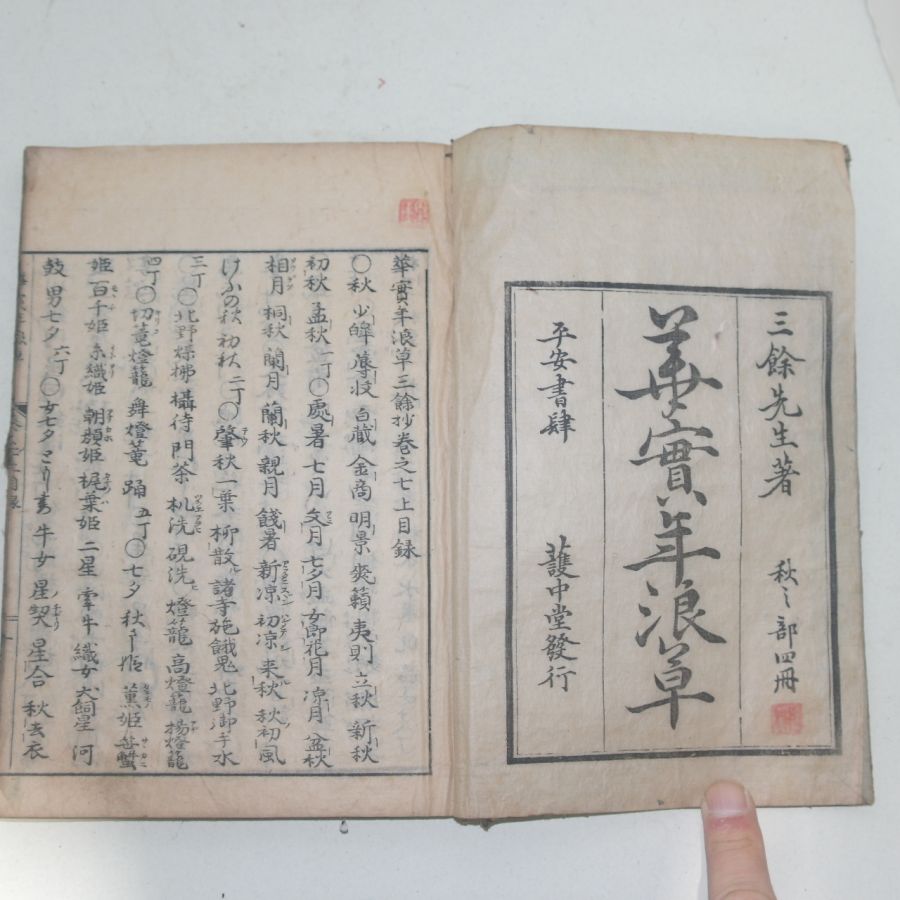 三餘先生著　秋之部四冊
華實年浪草
平安書肆　護中堂發行
華實年浪草三餘抄卷之七上目録
〇秋 少皞 蓐收 白蔵 金商 明景 爽籟 夷則 立秋 新秋
初秋 孟秋 一丁〇處暑 七月 文月 七夕月 女郎花月 凉月 盆秋
相月 桐秋 蘭月 蘭秋 親月 餞暑 新凉 初凉 来秋 秋初風
けふの秋 初秋 二丁〇肇秋 一葉 柳散 諸寺施餓鬼 北野御手水
三丁〇北野煤拂 攝待 門茶 机洗 硯洗 燈籠 高燈籠 揚燈籠
四丁〇切篭燈籠 舞燈篭 踊 五丁〇七夕 秋さり姫 薫姫 笹蟹
姫 百千姫 糸織姫 朝顔姫 梶葉姫 二星 牽牛 織女 犬飼星 河
鼓 男七夕 六丁〇女七夕 牛女 星契 星合 秋去衣